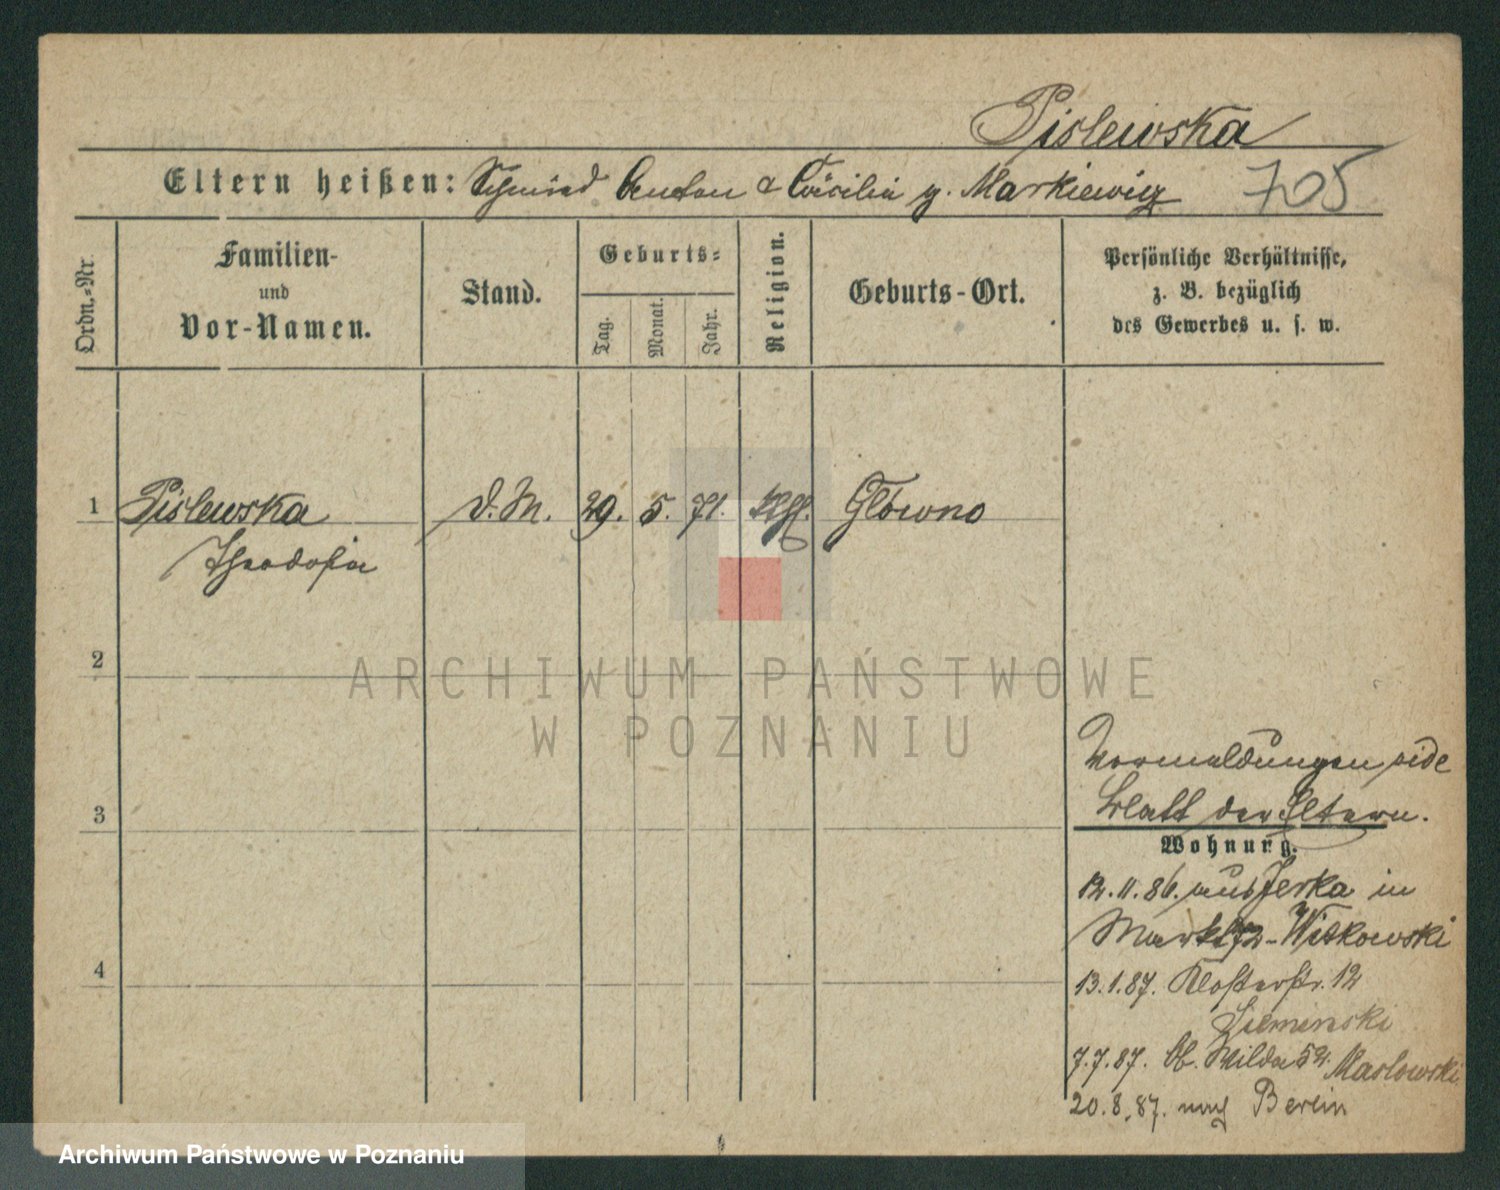 Pislewska
Eltern heißen: Schmied Anton & Cäcilia g. Markiewicz 705
Ordn.-Nr.
Familien-
und
Vor-Namen.
Stand.
Geburts-
Tag.
Monat.
Jahr.
Religion.
Geburts-Ort.
Persönliche Verhältnisse,
z. B. bezüglich
des Gewerbes u. s. w.
1 Pislewska D. M. 29. 5. 71. Główno
Theodosia
2
ARCHIWUM PAŃSTWOWE
W POZNANIU
Vormeldungen vide
3 Blatt der Eltern.
Wohnung.
12.11.86. aus Jerka in
Markt 72 - Witkowski
4 13.1.87. Klosterstr. 12
Zieminski
7.7.87. Ob. Wilda 52. Maslowski
20.8.87. nach Berlin
Archiwum Państwowe w Poznaniu